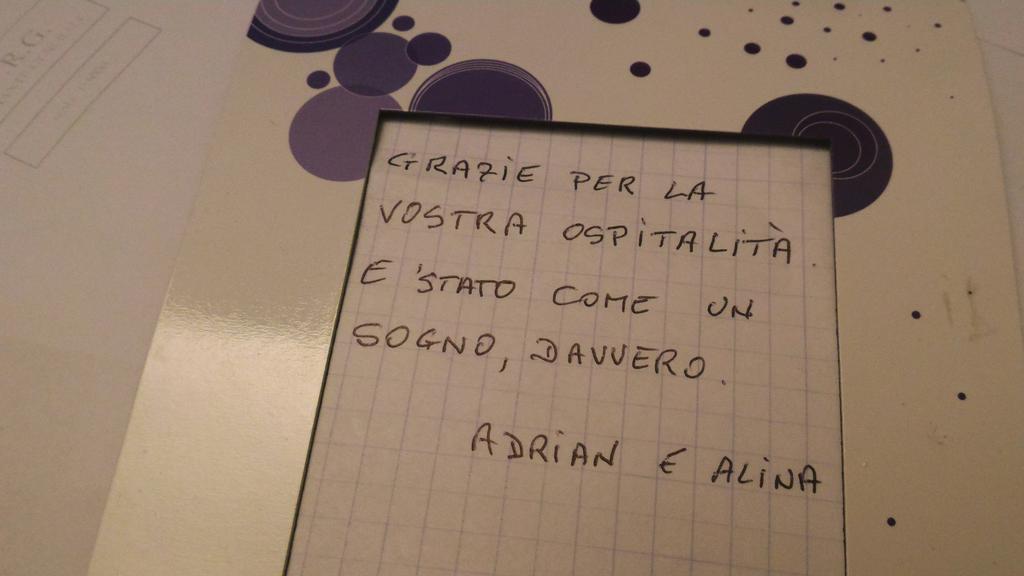 R.G.
GRAZIE PER LA
VOSTRA OSPITALITÀ.
E 'STATO COME UN
SOGNO, DAVVERO.
ADRIAN E ALINA